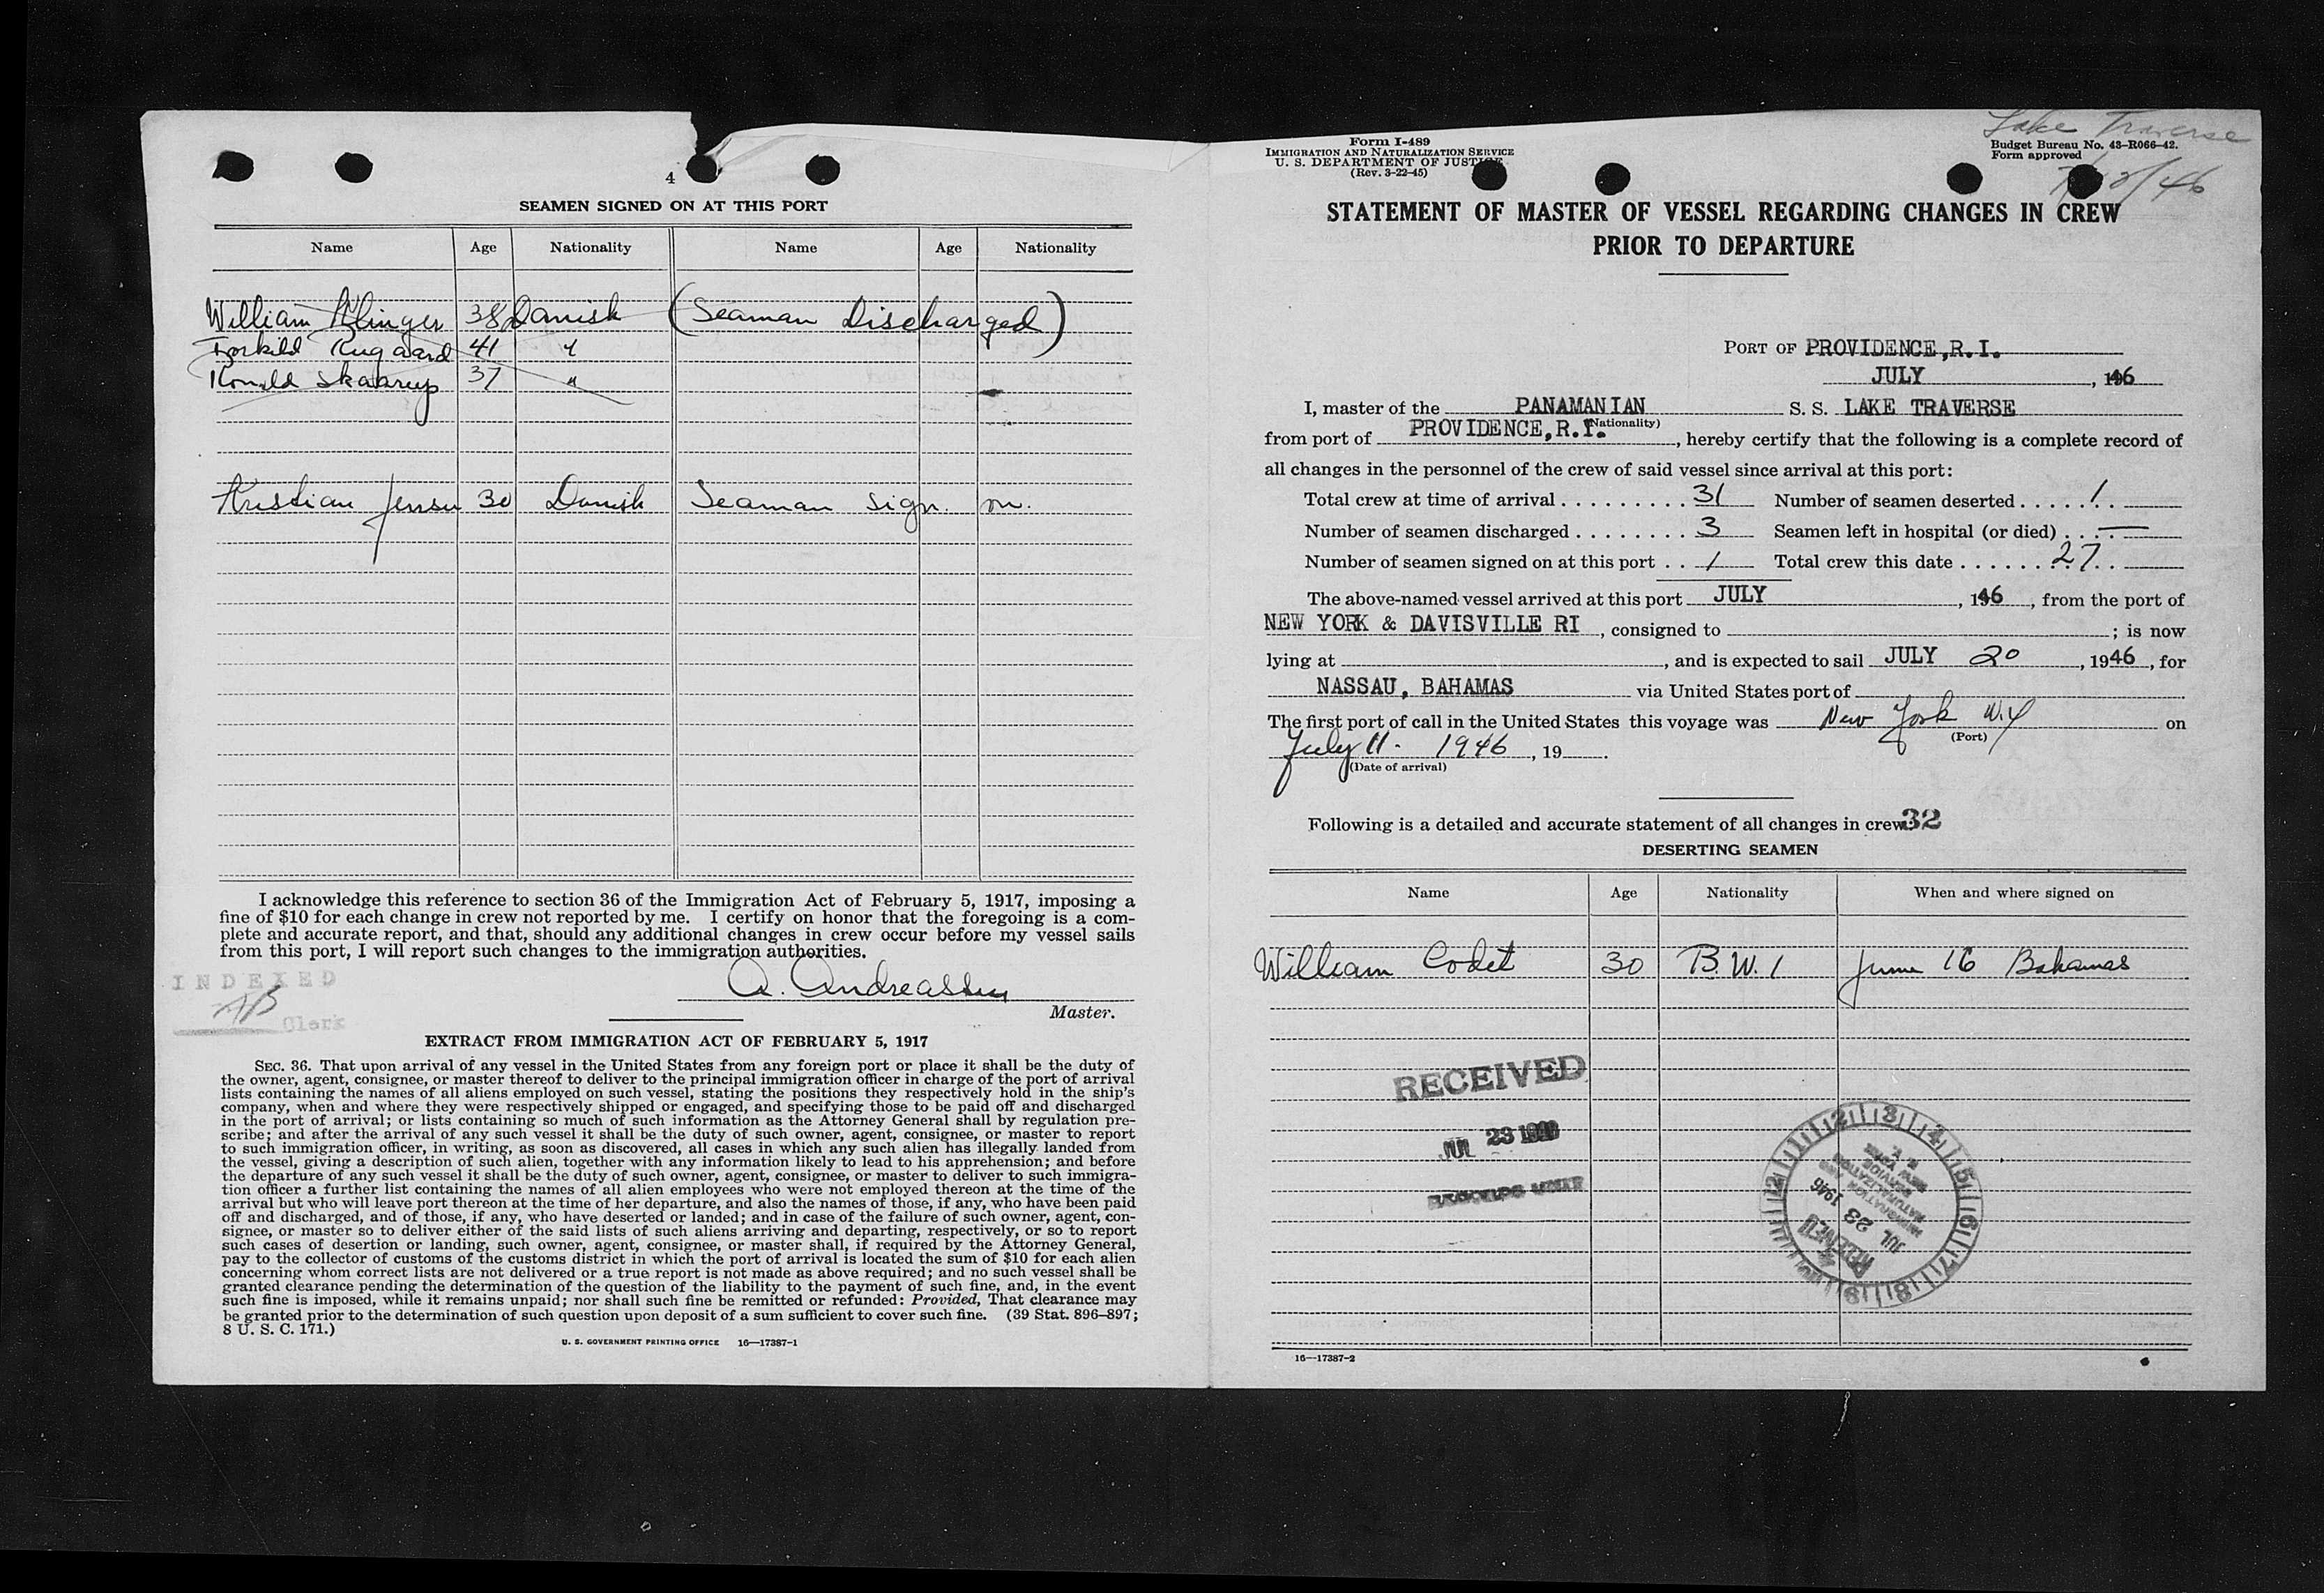 4
SEAMEN SIGNED ON AT THIS PORT
Name Age Nationality Name Age Nationality
William Klinger 38 Danish (Seaman Discharged)
Torkild Rugaard 41 "
Skaarup 37 "
Kristian Jensen 30 Danish Seaman Sign. on.
I acknowledge this reference to section 36 of the Immigration Act of February 5, 1917, imposing a
fine of $10 for each change in crew not reported by me. I certify on honor that the foregoing is a com-
plete and accurate report, and that, should any additional changes in crew occur before my vessel sails
from this port, I will report such changes to the immigration authorities.
INDEXED
Clerk
A. Andreassen
Master.
EXTRACT FROM IMMIGRATION ACT OF FEBRUARY 5, 1917
SEC. 36. That upon arrival of any vessel in the United States from any foreign port or place it shall be the duty of
the owner, agent, consignee, or master thereof to deliver to the principal immigration officer in charge of the port of arrival
lists containing the names of all aliens employed on such vessel, stating the positions they respectively hold in the ship's
company, when and where they were respectively shipped or engaged, and specifying those to be paid off and discharged
in the port of arrival; or lists containing so much of such information as the Attorney General shall by regulation pre-
scribe; and after the arrival of any such vessel it shall be the duty of such owner, agent, consignee, or master to report
to such immigration officer, in writing, as soon as discovered, all cases in which any such alien has illegally landed from
the vessel, giving a description of such alien, together with any information likely to lead to his apprehension; and before
the departure of any such vessel it shall be the duty of such owner, agent, consignee, or master to deliver to such immigra-
tion officer a further list containing the names of all alien employees who were not employed thereon at the time of the
arrival but who will leave port thereon at the time of her departure, and also the names of those, if any, who have been paid
off and discharged, and of those, if any, who have deserted or landed; and in case of the failure of such owner, agent, con-
signee, or master so to deliver either of the said lists of such aliens arriving and departing, respectively, or so to report
such cases of desertion or landing, such owner, agent, consignee, or master shall, if required by the Attorney General,
pay to the collector of customs of the customs district in which the port of arrival is located the sum of $10 for each alien
concerning whom correct lists are not delivered or a true report is not made as above required; and no such vessel shall be
granted clearance pending the determination of the question of the liability to the payment of such fine, and, in the event
such fine is imposed, while it remains unpaid; nor shall such fine be remitted or refunded: Provided, That clearance may
be granted prior to the determination of such question upon deposit of a sum sufficient to cover such fine. (39 Stat. 896–897;
8 U. S. C. 171.)
U. S. GOVERNMENT PRINTING OFFICE 16—17387-1
Form I-489
IMMIGRATION AND NATURALIZATION SERVICE
U. S. DEPARTMENT OF JUSTICE
(Rev. 3-22-45)
Lake Traverse
Budget Bureau No. 43–R066–42.
Form approved
STATEMENT OF MASTER OF VESSEL REGARDING CHANGES IN CREW
PRIOR TO DEPARTURE
PORT OF PROVIDENCE,R.I.
JULY , 1946
I, master of the PANAMANIAN S. S. LAKE TRAVERSE
(Nationality)
from port of PROVIDENCE,R.I. , hereby certify that the following is a complete record of
all changes in the personnel of the crew of said vessel since arrival at this port:
Total crew at time of arrival 31 Number of seamen deserted 1
Number of seamen discharged 3 Seamen left in hospital (or died) —
Number of seamen signed on at this port 1 Total crew this date 27
The above-named vessel arrived at this port JULY , 1946 , from the port of
NEW YORK & DAVISVILLE RI , consigned to ; is now
lying at , and is expected to sail JULY 20 , 1946 , for
NASSAU, BAHAMAS via United States port of
The first port of call in the United States this voyage was New York N.Y on
(Port)
July 11. 1946 , 19 .
(Date of arrival)
Following is a detailed and accurate statement of all changes in crew: 32
DESERTING SEAMEN
Name Age Nationality When and where signed on
William Codet 30 B.W.I June 16 Bahamas
RECEIVED
JUL 23 1946
RECEIVED
JUL 23 1946
IMMIGRATION AND
NATURALIZATION
SERVICE
NEW YORK
N. Y.
16—17387-2